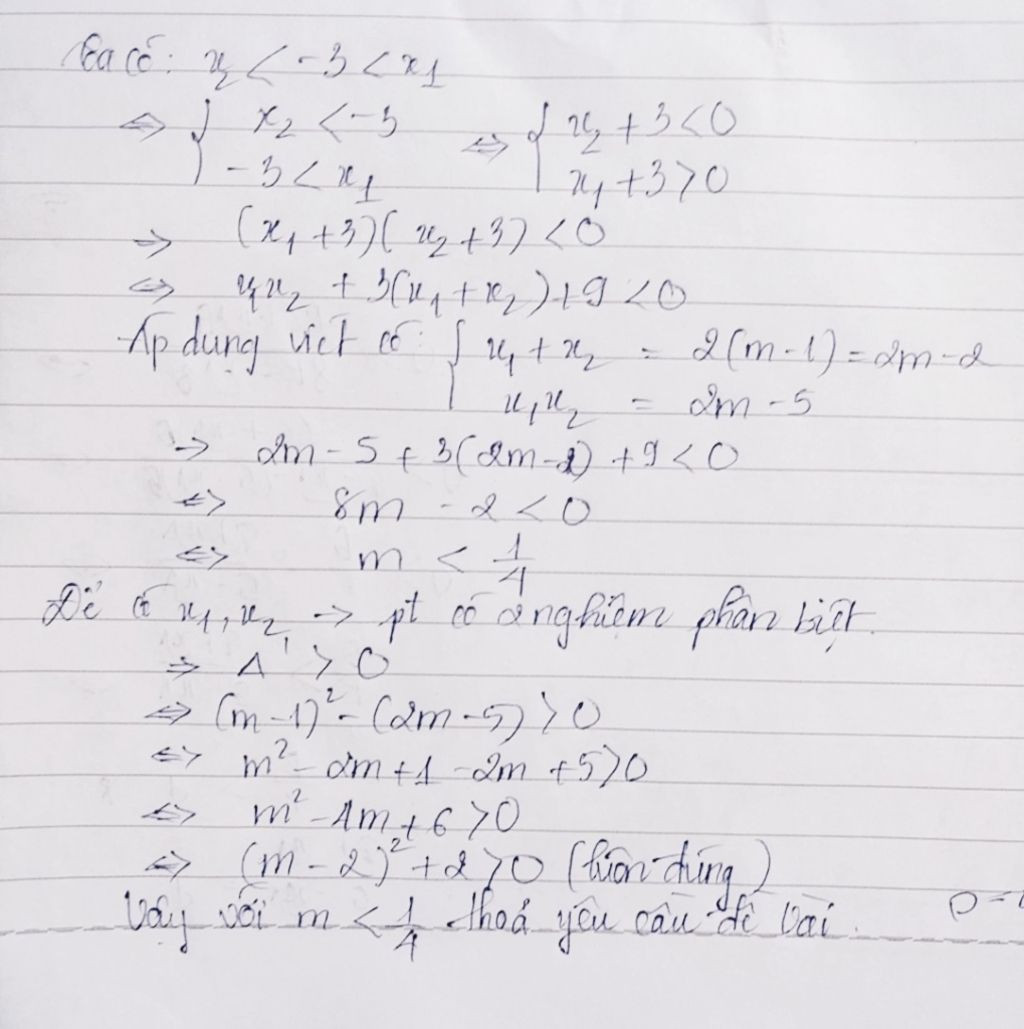 Ta có: x₂ < -3 < x₁
⇔ { x₂ < -3 ⇔ { x₂ + 3 < 0
-3 < x₁ x₁ + 3 > 0
⇒ (x₁ + 3)(x₂ + 3) < 0
⇔ x₁x₂ + 3(x₁ + x₂) + 9 < 0
Áp dụng viét có: { x₁ + x₂ = 2(m - 1) = 2m - 2
x₁x₂ = 2m - 5
→ 2m - 5 + 3(2m - 2) + 9 < 0
⇔ 8m - 2 < 0
⇔ m < 1/4
Để có x₁, x₂ → pt có 2 nghiệm phân biệt.
⇒ Δ' > 0
⇔ (m - 1)² - (2m - 5) > 0
⇔ m² - 2m + 1 - 2m + 5 > 0
⇔ m² - 4m + 6 > 0
⇔ (m - 2)² + 2 > 0 (luôn đúng)
Vậy với m < 1/4 thoả yêu cầu đề bài.